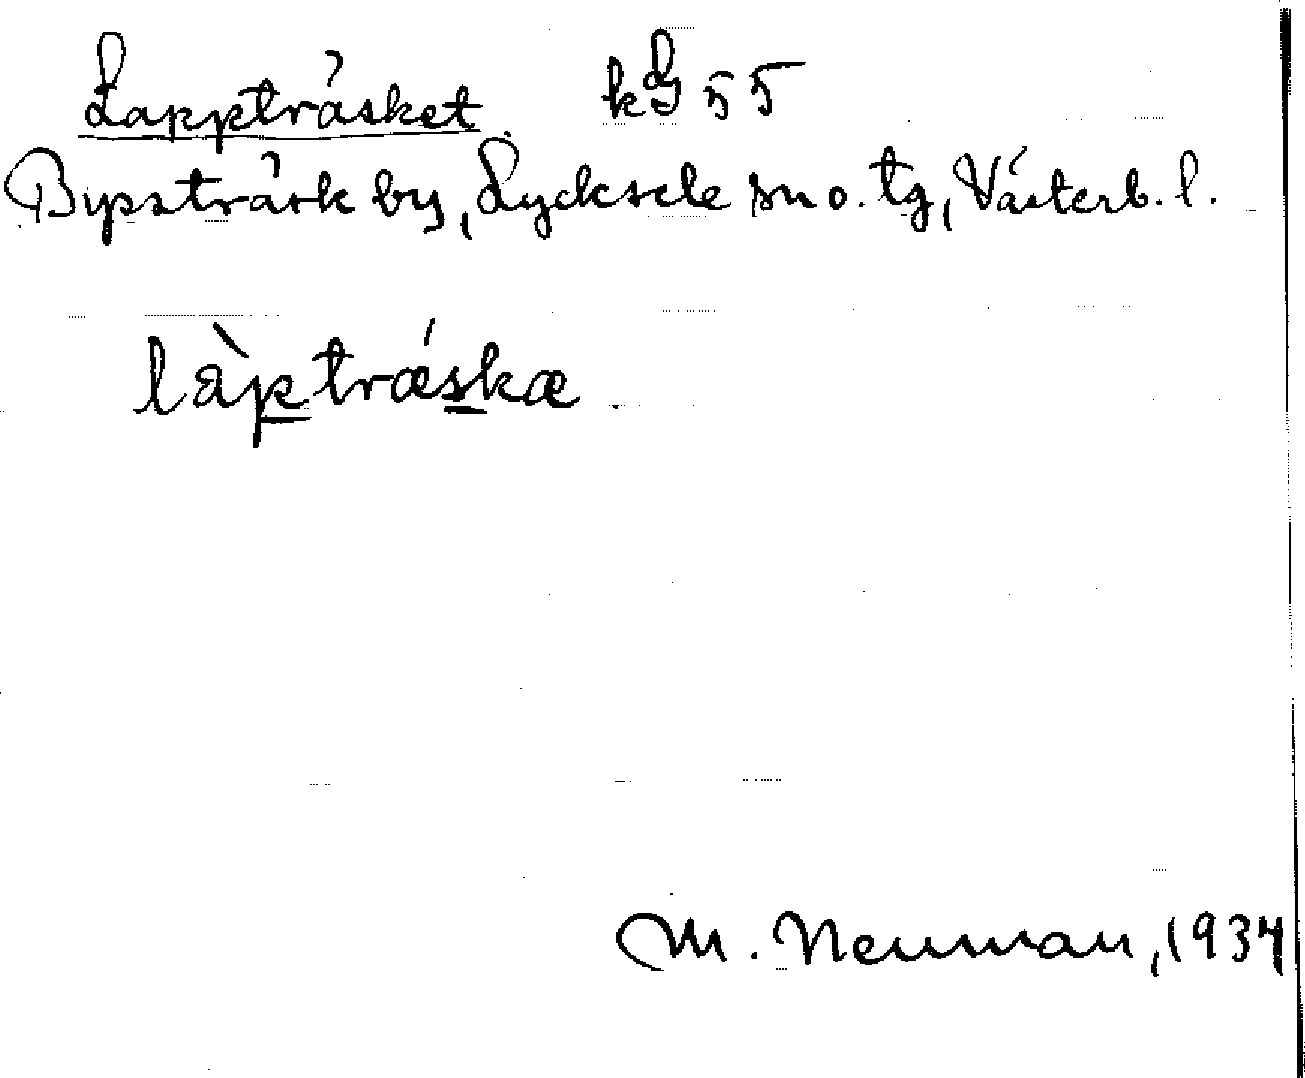 Lappträsket kg 55
Bysträsk by, Lycksele sn o. tg, Västerb. l.
làptrǽskæ
M. Neuman, 1934